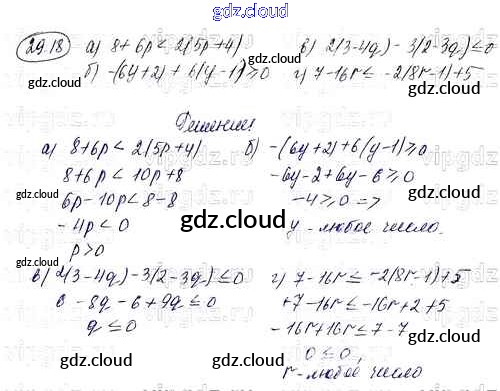 gdz.cloud
29.18 а) 8+6p < 2(5p+4) в) 2(3-4q)-3(2-3q) ≤ 0
б) -(6y+2)+6(y-1) ≥ 0 г) 7-16r ≤ -2(8r-1)+5
Решение:
а) 8+6p < 2(5p+4) б) -(6y+2)+6(y-1) ≥ 0
8+6p < 10p+8 -6y-2+6y-6 ≥ 0
6p-10p < 8-8 -4 ≥ 0 =>
-4p < 0 y - любое число.
p > 0
в) 2(3-4q)-3(2-3q) ≤ 0 г) 7-16r ≤ -2(8r-1)+5
6-8q-6+9q ≤ 0 +7-16r ≤ -16r+2+5
q ≤ 0 -16r+16r ≤ 7-7
0 ≤ 0,
r - любое число
gdz.cloud
gdz.cloud
gdz.cloud
gdz.cloud
gdz.cloud
gdz.cloud
gdz.cloud
gdz.cloud
gdz.cloud
gdz.cloud